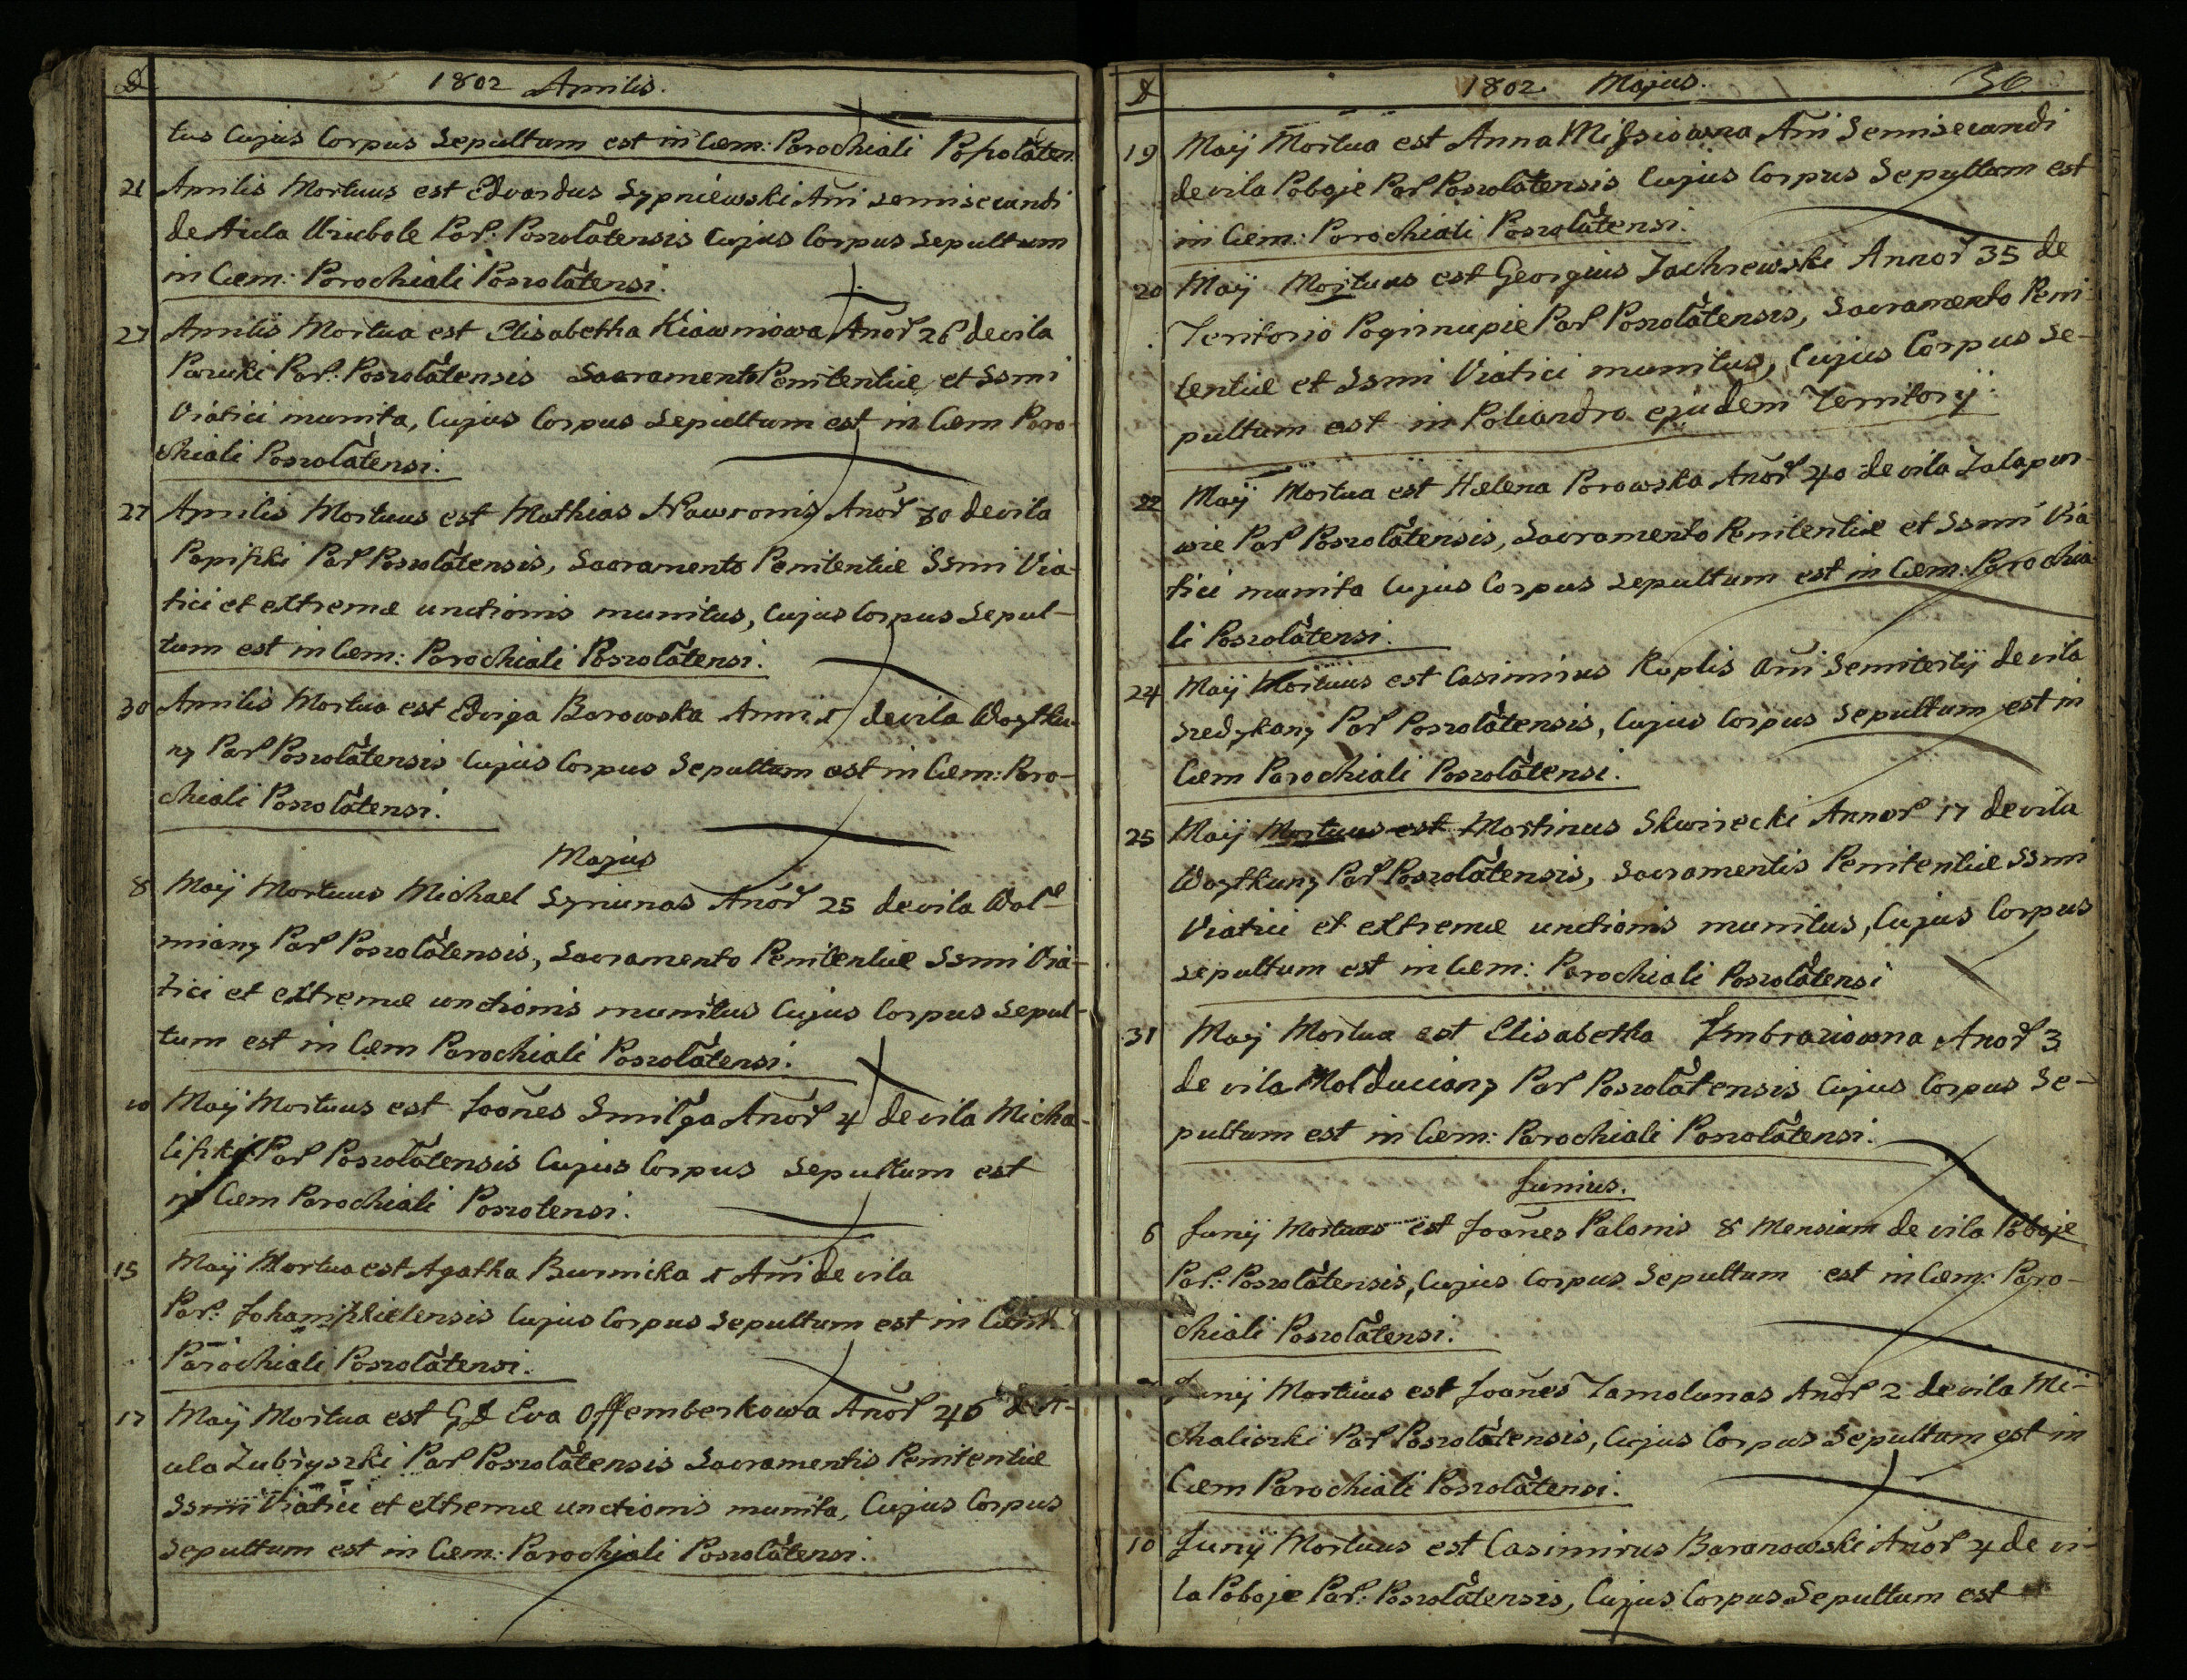 D 1802 Aprilis.
tus Cujus Corpus Sepultum est in Cæm: Parochiali Poßolaten
21 Aprilis Mortuus est Edvardus Sypniewski Ani semisecundi
de Aula Par: Poszolatensis Cujus Corpus Sepultum
in Cæm: Parochiali Poszolatensi.
27 Aprilis Mortua est Elisabetha Kiawniowa Anor 26 de vila
Par: Poszolatensis Sacramento Penitentiæ et Ssmi
Viatici munita, Cujus Corpus Sepultum est in Cæm Paro-
chiali Poszolatensi.
27 Aprilis Mortuus est Mathias Nawronis Anor 80 de vila
Papißki Par Poszolatensis, Sacramento Penitentiæ Ssmi Via-
tici et extremæ unctionis munitus, Cujus Corpus Sepul-
tum est in Cæm: Parochiali Poszolatensi.
30 Aprilis Mortua est Edviga Barowska Anni 1 de vila Woytku-
ny Par Poszolatensis Cujus Corpus Sepultum est in Cæm: Paro-
chiali Poszolatensi.
Majus
8 Maij Mortuus Michael Syriunas Anor 25 de vila Wol-
miany Par Poszolatensis, Sacramento Penitentiæ Ssmi Via-
tici et extremæ unctionis munitus Cujus Corpus Sepul-
tum est in Cæm Parochiali Poszolatensi.
10 Maij Mortuus est Joanes Smilga Anor 4 de vila Micha-
lißki Par Poszolatensis Cujus Corpus Sepultum est
in Cæm Parochiali Poszotensi.
15 Maij Mortua est Agatha Burnicka 1 Ani de vila
Par: Johanißkielensis Cujus Corpus Sepultum est in Cæm
Parochiali Poszolatensi.
17 Maij Mortua est G D Eva Offemberkowa Anor 46 de A-
ula Zubryszki Par Poszolatensis Sacramentis Penitentiæ
Ssmi Viatici et extremæ unctionis munita, Cujus Corpus
Sepultum est in Cæm: Parochiali Poszolatensi.
D 1802 Majus. 36
19 Maij Mortua est Anna Mißiowna Ani Semisecundi
de vila Poboje Par Poszolatensis Cujus Corpus Sepultum est
in Cæm: Parochiali Poszolatensi.
20 Maij Mortuus est Georgius Zachrewski Annor 35 de
Teritorio Pogirnupie Par Poszolatensis, Sacramento Peni-
tentiæ et Ssmi Viatici munitus, Cujus Corpus Se-
pultum est in Poliandro ejudem Territorij.
22 Maij Mortua est Helena Porowska Anor 40 de vila
wie Par Poszolatensis, Sacramento Penitentiæ et Ssmi Via
tici munita Cujus Corpus Sepultum est in Cæm: Parochia-
li Poszolatensi.
24 Maij Mortuus est Casimirus Ruplis Ani Semitertij de vila
Szedykany Par Poszolatensis, Cujus Corpus Sepultum est in
Cæm Parochiali Poszolatensi.
25 Maij Mortuus est Martinus Skwirecki Annor 17 de vila
Woytkuny Par Poszolatensis, Sacramentis Penitentiæ Ssmi
Viatici et extremæ unctionis munitus, Cujus Corpus
Sepultum est in Cæm: Parochiali Poszolatensi
31 Maij Mortua est Elisabetha Jmbraziowna Anor 3
de vila Molduciany Par Poszolatensis Cujus Corpus Se-
pultum est in Cæm: Parochiali Poszolatensi.
Junius.
6 Junij Mortuus est Joanes Palonis 8 Mensium de vila Poboje
Par: Poszolatensis, Cujus Corpus Sepultum est in Cæm: Paro-
chiali Poszolatensi.
Junij Mortuus est Joanes Zamolunas Anor 2 de vila Mi-
chaliszki Par Poszolatensis, Cujus Corpus Sepultum est in
Cæm Parochiali Poszolatensi.
10 Junij Mortuus est Casimirus Baranowski Anor 4 de vi-
la Poboje Par: Poszolatensis, Cujus Corpus Sepultum est